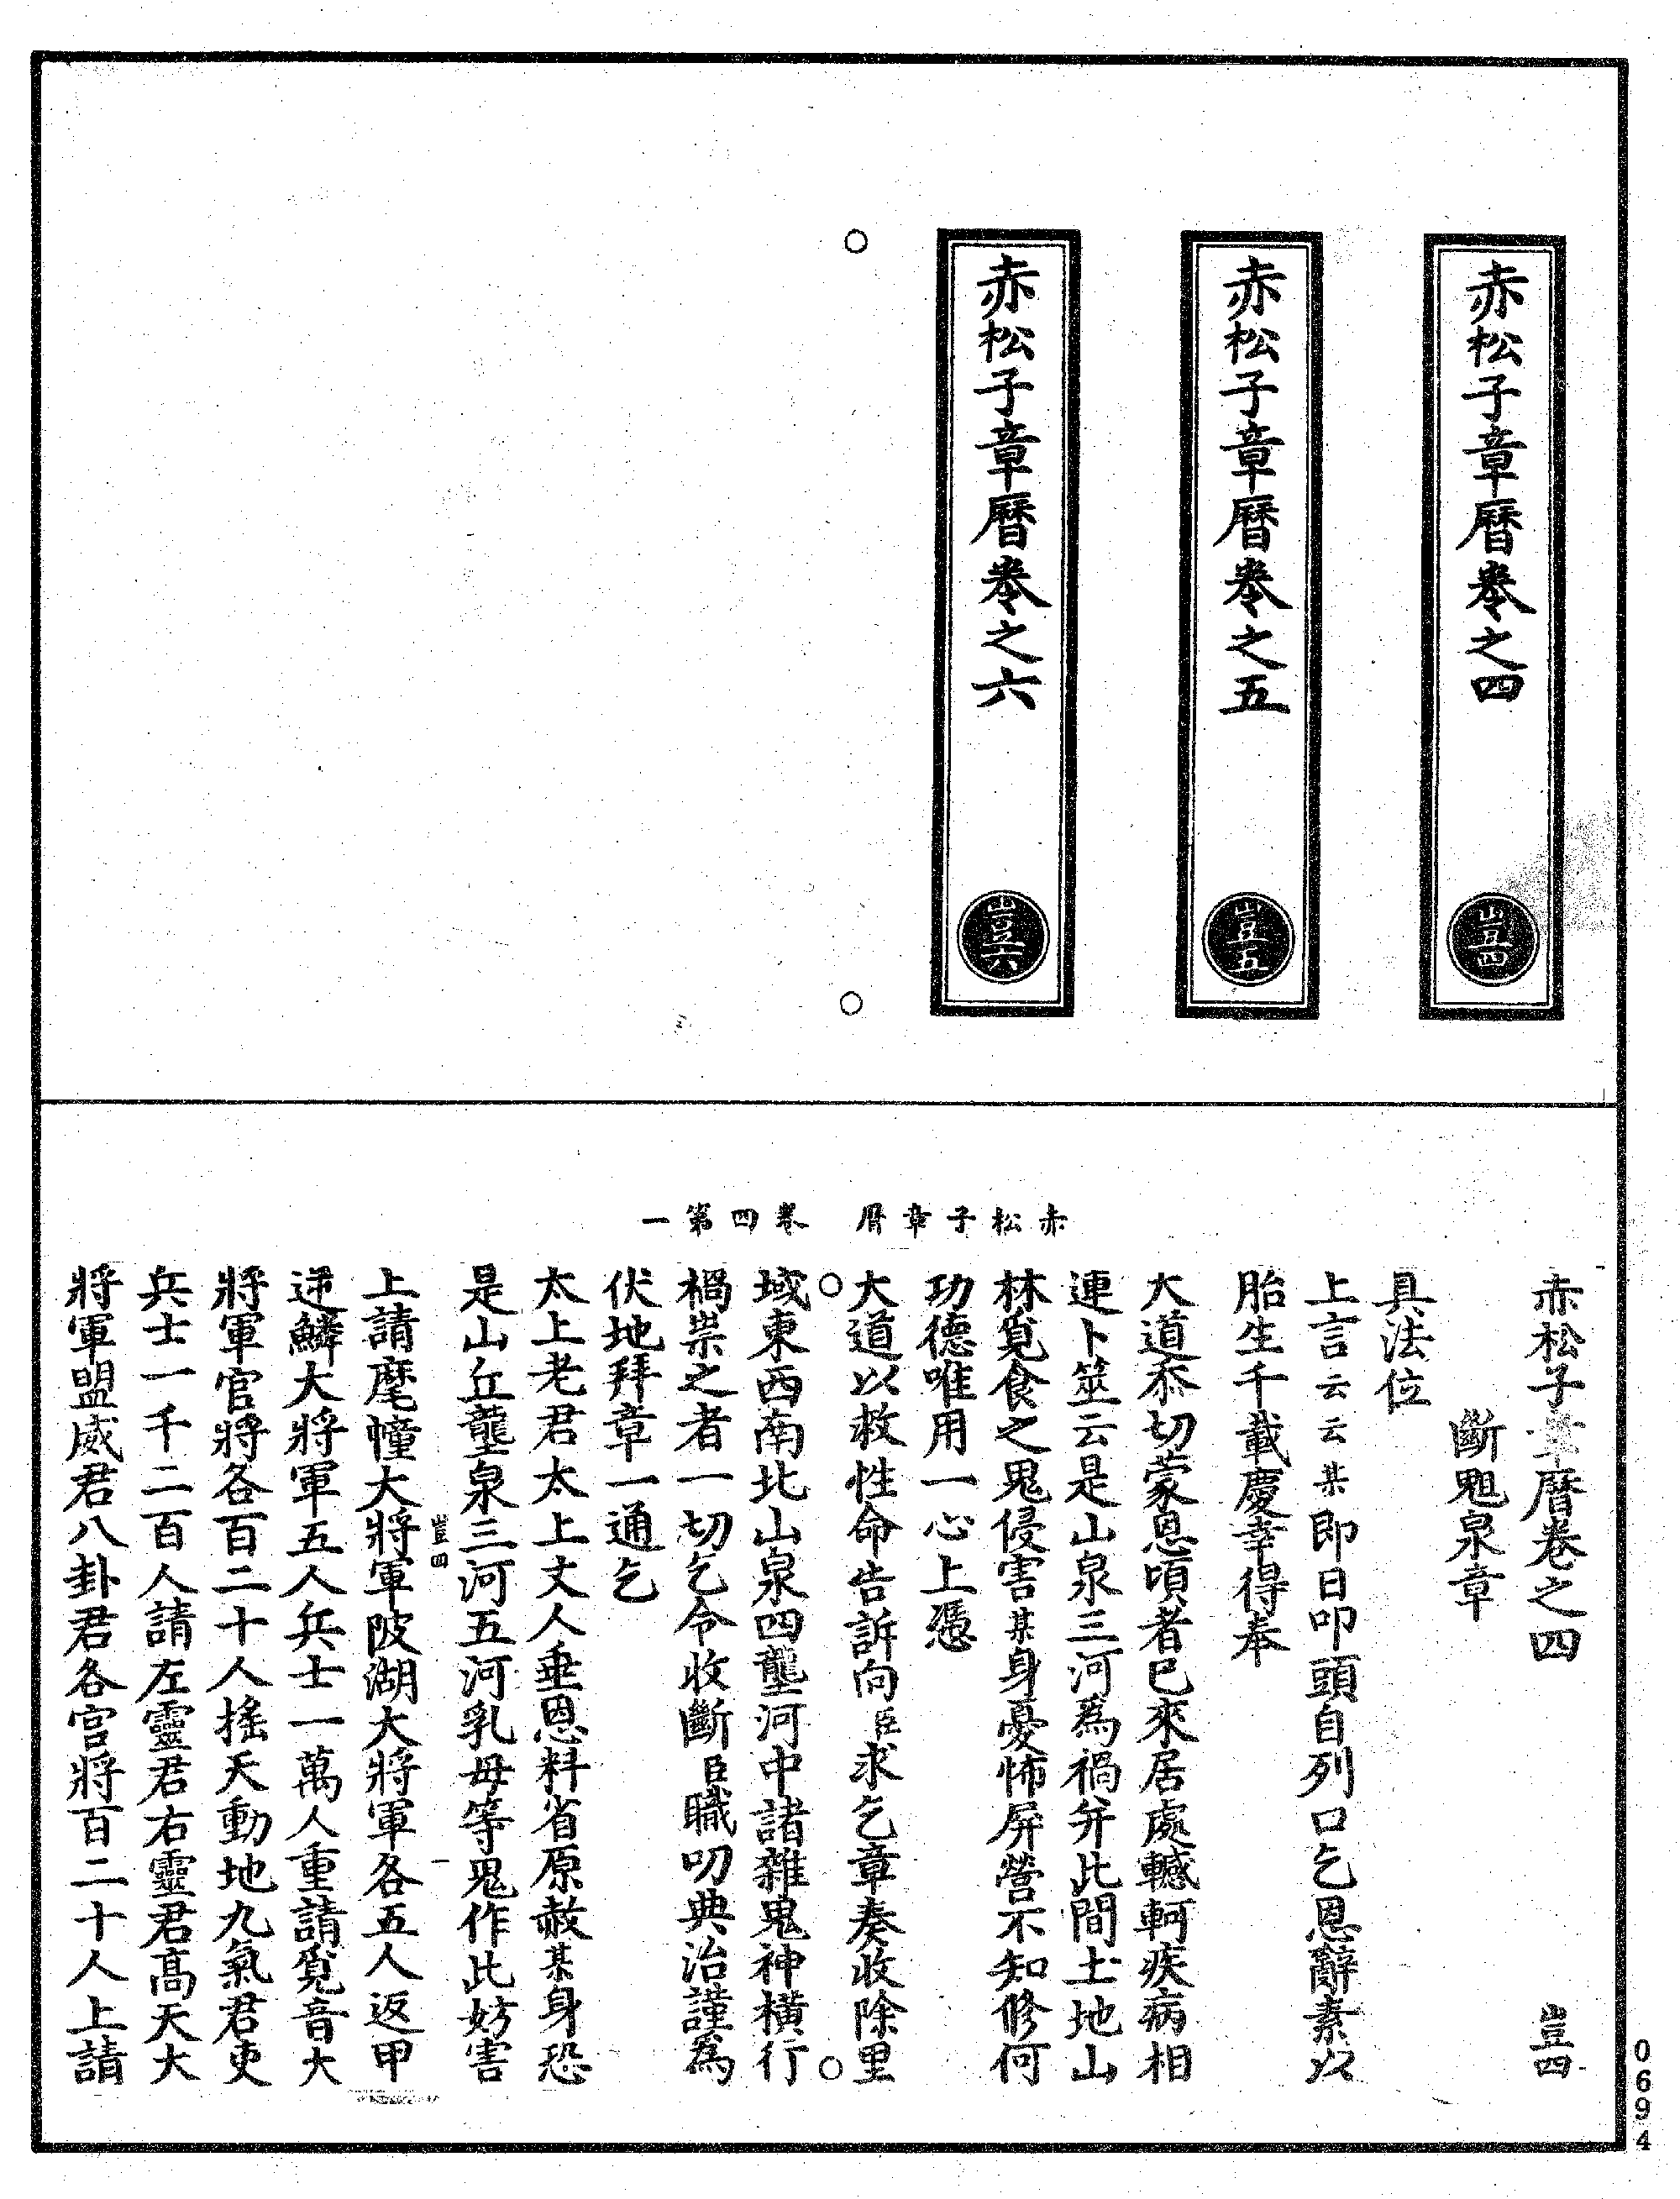 赤松子章曆卷之四
豈四
赤松子章曆卷之五
豈五
赤松子章曆卷之六
豈六
赤松子章曆　卷四第一
赤松子章曆卷之四　豈四
斷䰡泉章
具法位
上言云云某即日叩頭自列口乞恩辭素以
胎生千載慶幸得奉
大道忝切蒙恩頃者已來居處轗軻疾病相
連卜筮云是山泉三河為禍并此間土地山
林覓食之鬼侵害某身憂怖屏營不知修何
功德唯用一心上憑
大道以救性命告訴向臣求乞章奏收除里
域東西南北山泉四壟河中諸雜鬼神橫行
禍祟之者一切乞令收斷臣職叨典治謹為
伏地拜章一通乞
太上老君太上丈人垂恩料省原赦某身恐
是山丘壟泉三河五河乳母等鬼作此妨害
豈四　一
上請麾幢大將軍陂湖大將軍各五人返甲
逆鱗大將軍五人兵士一萬人重請覓音大
將軍官將各百二十人搖天動地九氣君吏
兵士一千二百人請左靈君右靈君高天大
將軍盟威君八卦君各官將百二十人上請
0694